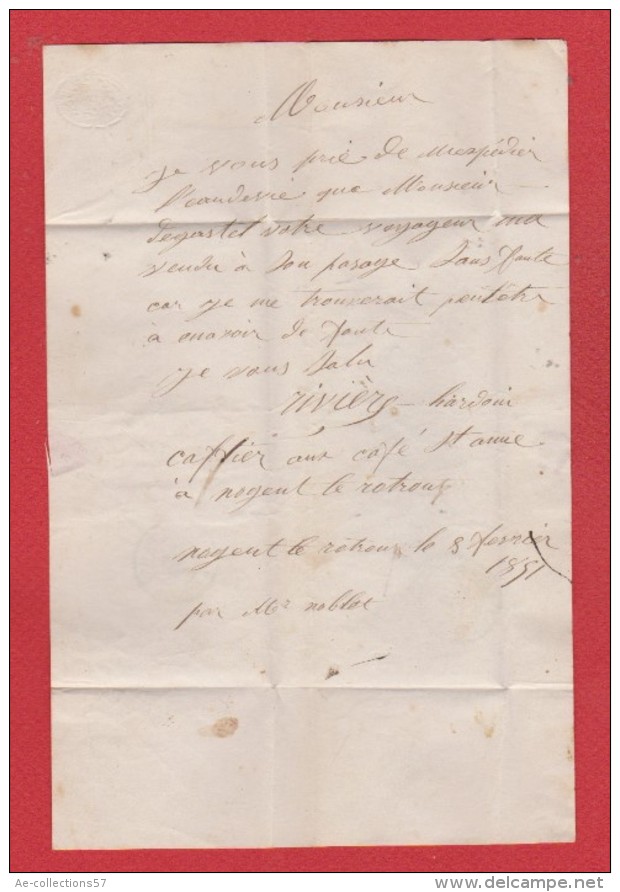 Monsieur
je vous prie de mexpédier
l'eaudevie que Monsieur
degastet votre voyageur ma
vendu à Son pasage Sans faute
car je me trouverait peutêtre
à mavoir de faute
je vous Salu
rivière hardoin
caffier aux café St anne
à nogent le rotrou
nogent le rotrou le 8 fevrier
1851
par Mr noblot
Ae-collections57
www.delcampe.net